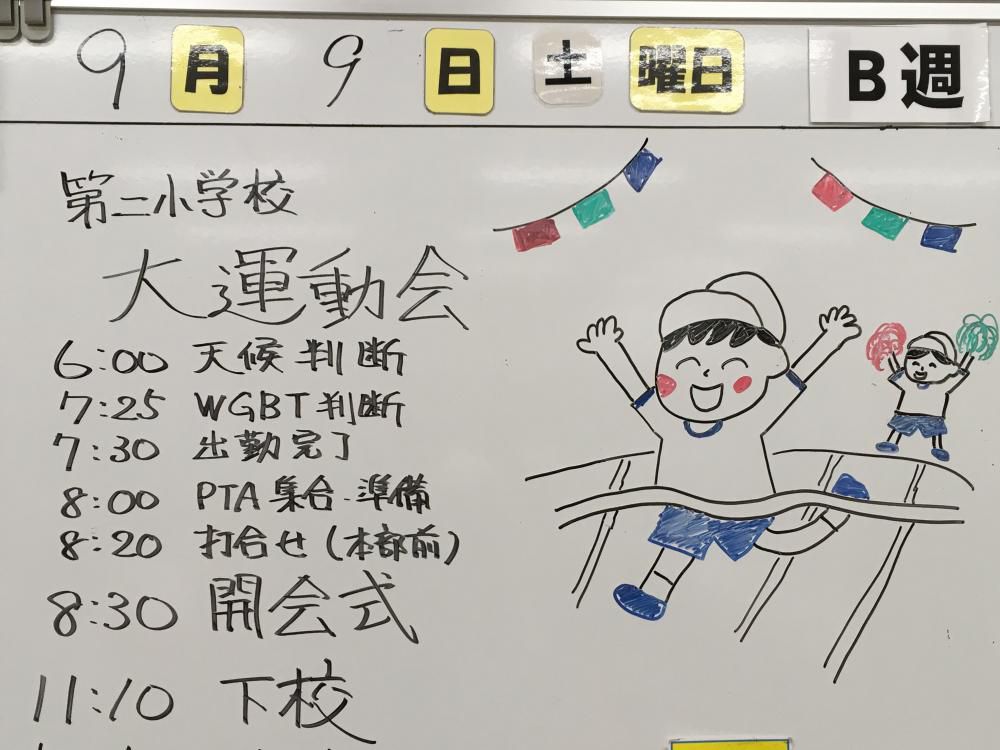 9月9日 土曜日 B週
第二小学校
大運動会
6:00 天候判断
7:25 WGBT判断
7:30 出勤完了
8:00 PTA集合・準備
8:20 打合せ(本部前)
8:30 開会式
11:10 下校